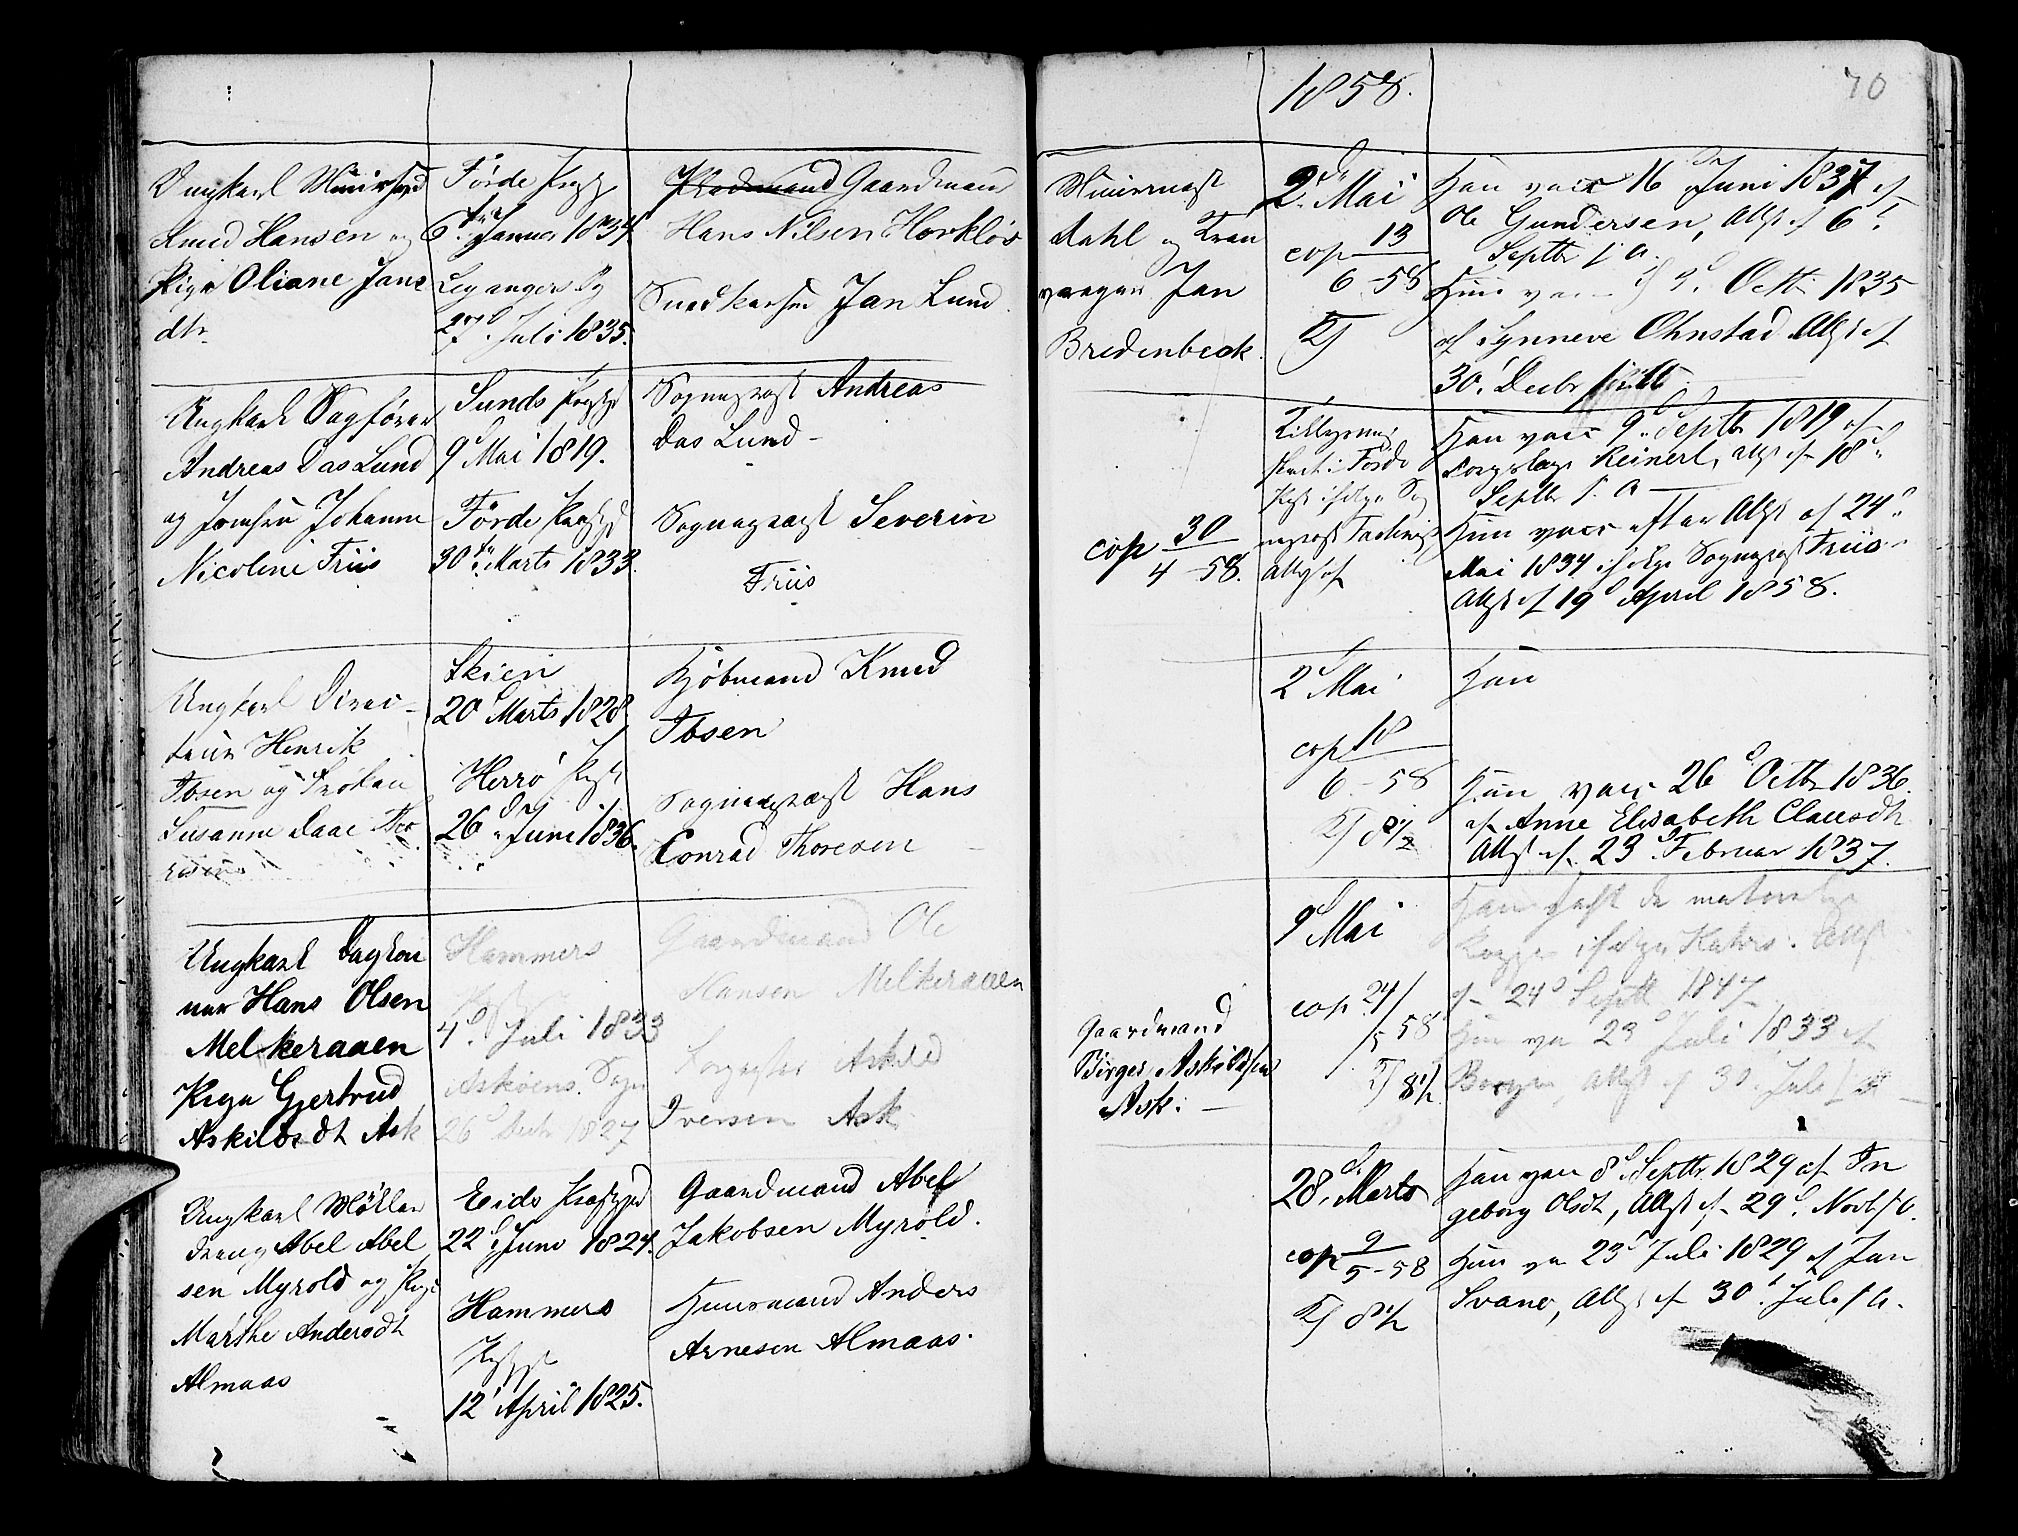 1858.
70
Ungkarl Muursvd
Knud Hansen og
Pige Oliane Jans
dtr
Förde Prgj
6te Januar 1834
Leganger Pg
27d Juli 1835.
Gaardmand
Hans Nilsen Horklös
Snedkersv Jan Lund
Muurmest
dahl og Kran
vaagen Jan
Bredenbeck.
2d Mai
cop 13
6-58
Han vacc 16 Juni 1837 af
Ole Gundersen, Attst af 6t
Septbr s. a.
Hun vacc 9d Octb 1835
af Synneve Ohnstad Attst af
30. Decbr
Ungkarl Sagförer
Andreas Das Lund
og Jomfru Johanne
Nicoline Friis
Sunds Prgj
9d Mai 1819.
Förde Præstgd
30te Marts 1833.
Sognepræst Andreas
Das Lund
Sognepræst Severin
Friis
cop 30
4-58.
Tillysning
skeet i Förde
Attst af
Han vacc 9d Septbr 1819 af
Reinert, Attst af 18d
Septbr s. a
Hun vacc efter Attst af 24d
Mai 1834 ifölge Sognepræst Friis
Attst af 19d April 1858.
Ungkarl Direc-
teur Henrik
Ibsen og Fröken
Susanne Daae Tho
resen
Skien
20d Marts 1828
Herrö Prgj
26d Juni 1836.
Kjöbmand Knud
Ibsen
Sognepræst Hans
Conrad Thoresen
2d Mai
cop 18
6-58
Han
Hun vacc 26d Octbr 1836.
af Anne Elisabeth Clausdtr
Attst af 23d Februar 1837.
Ungkarl Dagløn
ner Hans Olsen
Melkeraaen
Pige Gjertrud
Askildsdt Ask
Hammers
4d Juli 1833
Askøens Sogn
26d Decbr 1827
Gaardmand Ole
Hansen Melkeraaen
Askild
Iversen Ask
Gaardmand
Birger Askildsen
Ask.
9d Mai
cop 24/
5 58
8½
Han havt de naturlige
Kopper ifølge Attst
af 24d Septbr 1847
Hun va 23d Juli 1833 af
Attst af 30. Juli s a
Ungkarl Möller
dreng Abel Abel
sen Myrold og Pige
Marthe Andersdt
Almaas
Eids Præstgd
22d Juni 1824.
Hammers
Prgj
12 April 1825.
Gaardmand Abel
Jakobsen Myrold.
Huusmand Anders
Arnesen Almaas.
28d Marts
cop 9
5-58
8½
Han vacc 8d Septbr 1829 af In
geborg Olsdt, Attst af 29d Novb s a.
Hun va 23d Juli 1829 af Jan
Svanø, Attst af 30t Juli s a.